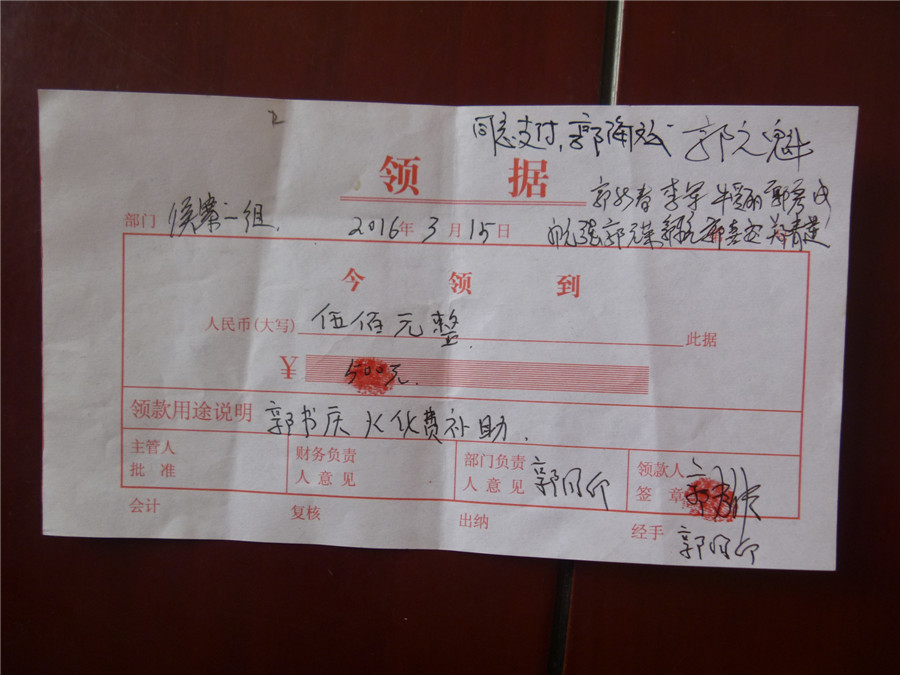 同意支付，郭海斌 郭文魁
领 据
郭 春 李军 牛 郭秀成
部门 侯第一组. 2016年3月15日 强 郭文荣 郭 郭 郑春莲
今 领 到
人民币(大写) 伍佰元整 此据
¥ 500元.
领款用途说明 郭书庆火化费补助.
主管人批 准 财务负责人意见 部门负责人意见 郭同印 领款人签 章
会计 复核 出纳 经手 郭同印